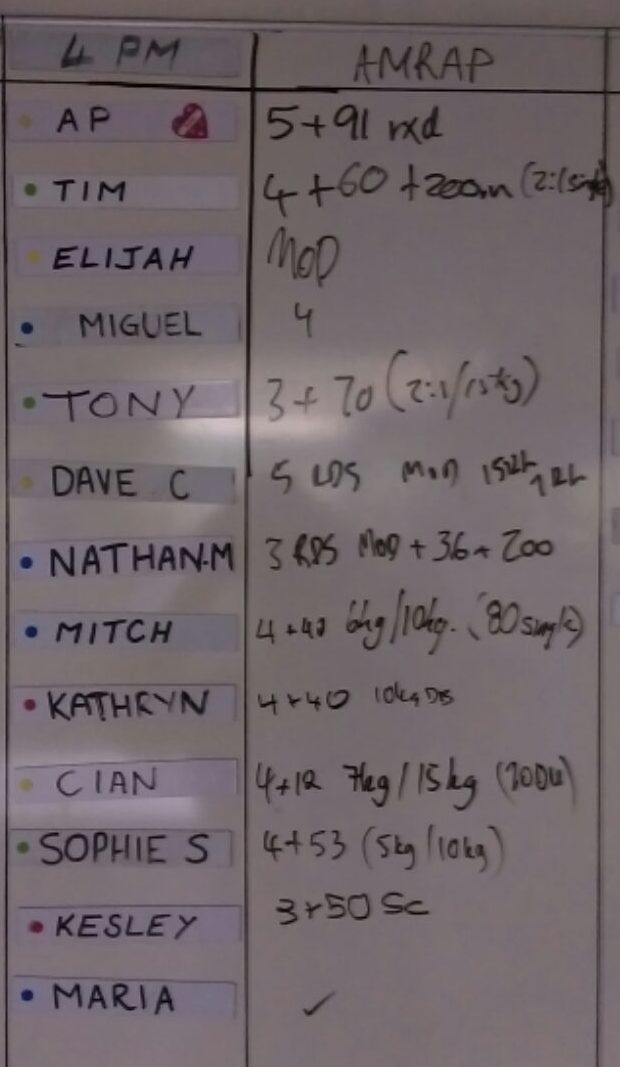 4 PM AMRAP
AP 5+91 rxd
TIM 4+60 +200m (2:1
ELIJAH MOD
MIGUEL 4
TONY 3+70 (2:1/15kg)
DAVE C 5 MOD
NATHAN.M 3 RDS MOD + 36 + 200
MITCH 6kg/10kg.
KATHRYN 4+40 10kg DB
CIAN 4+12 7kg/15kg
SOPHIE S 4+53 (5kg/10kg)
KESLEY 3+50 Sc
MARIA ✓